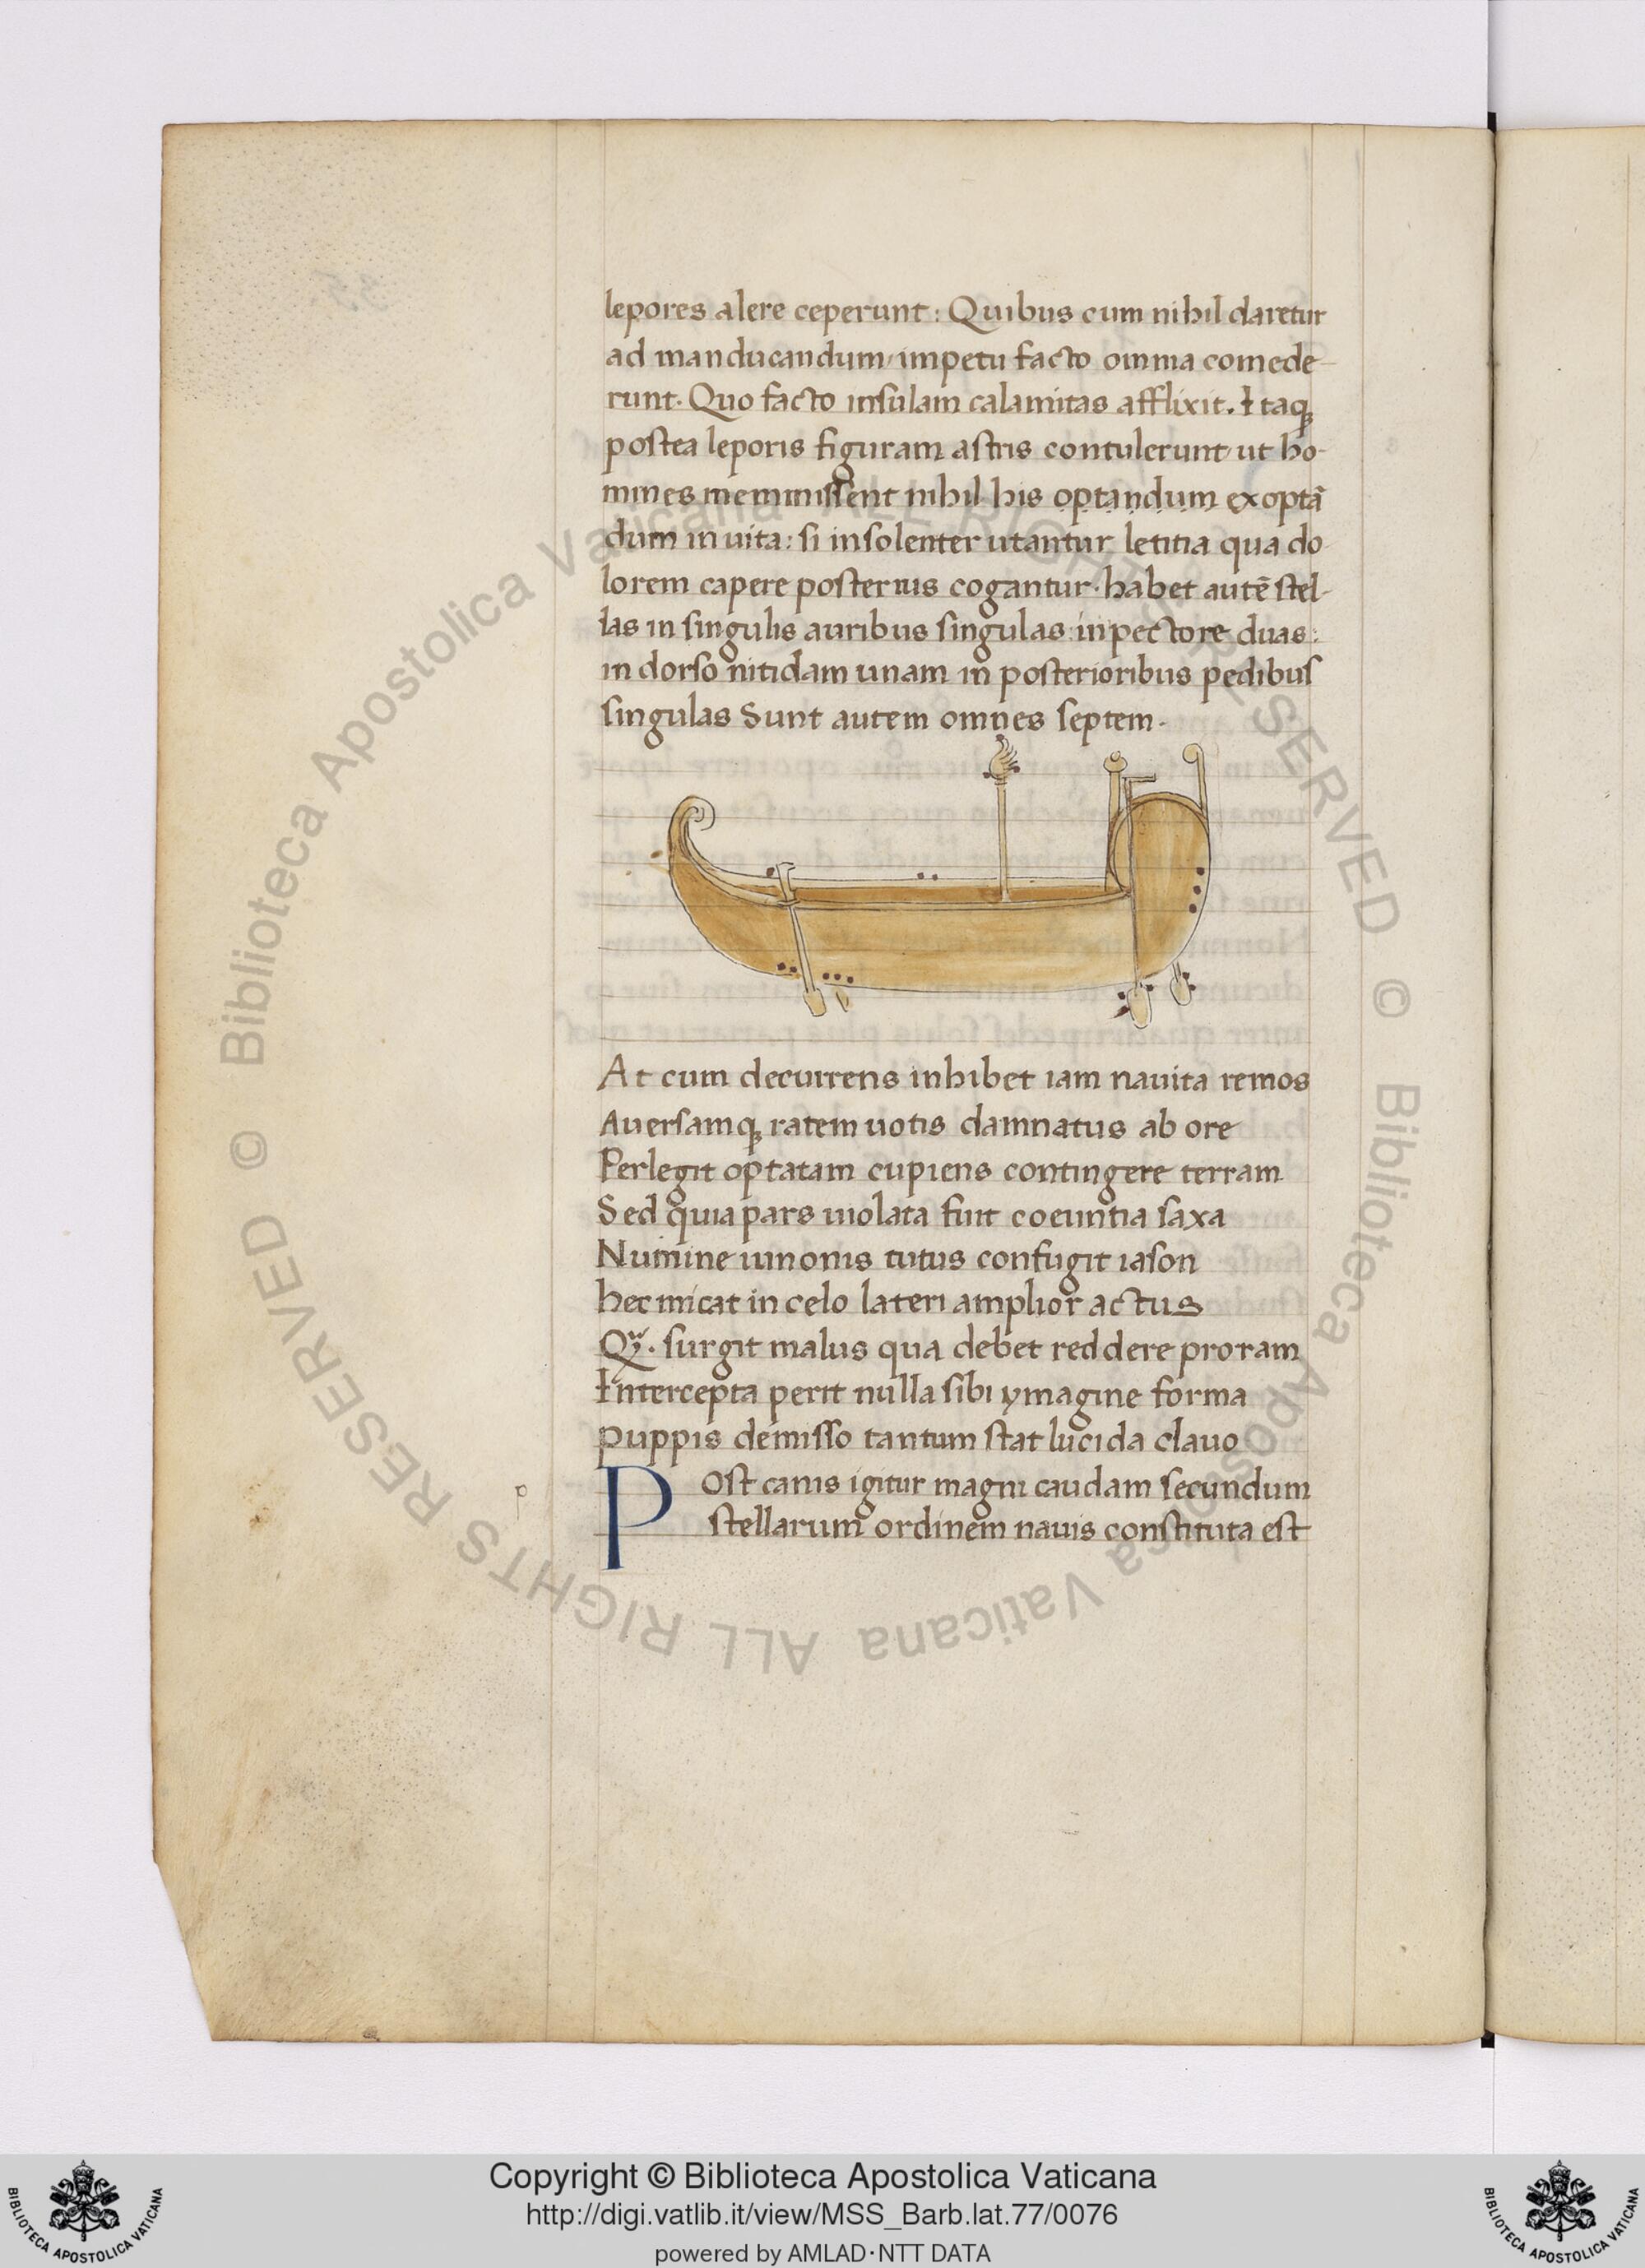 lepores alere ceperunt: Quibus cum nihil daretur
ad manducandum, impetu facto omnia comede-
runt. Quo facto insulam calamitas afflixit. Itaqꝫ
postea leporis figuram astris contulerunt, ut ho-
mines meminissent nihil his optandum exoptā
dum in uita: si insolenter utantur letitia qua do
lorem capere posterius cogantur. habet autē stel-
las in singulis auribus singulas: in pectore duas:
in dorso nitidam unam in posterioribus pedibus
singulas Sunt autem omnes septem.
At cum decurrens inhibet iam nauita remos
Auersamqꝫ ratem uotis damnatus ab ore
Perlegit optatam cupiens contingere terram
Sed quia pars uiolata fuit coeuntia saxa
Numine iunonis tutus confugit iason
hec micat in celo lateri amplior actus
surgit malus qua debet reddere proram
Intercepta perit nulla sibi ymagine forma
puppis demisso tantum stat lucida clauo
p
Post canis igitur magni caudam secundum
stellarum ordinem nauis constituta est
© Biblioteca Apostolica Vaticana ALL RIGHTS RESERVED © Biblioteca Apostolica Vaticana ALL RIGHTS RESERVED
Copyright © Biblioteca Apostolica Vaticana
http://digi.vatlib.it/view/MSS_Barb.lat.77/0076
powered by AMLAD·NTT DATA
BIBLIOTECA APOSTOLICA VATICANA
BIBLIOTECA APOSTOLICA VATICANA